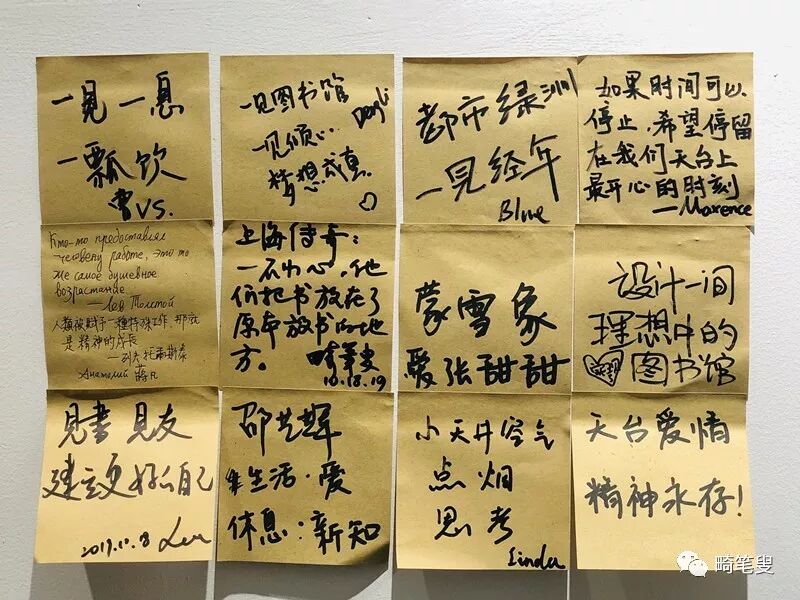 一見一息
一瓢饮
VS.
一见图书馆
一见倾心
梦想成真
都市绿洲
一见经年
Blue
如果时间可以
停止,希望停留
在我们天台上
最开心的时刻
—Maxence
Кто-то предоставлял
человеку работе, это то
же самое душевное
возрастание
—Лев Толстой
人類被賦予一種特殊工作,那就
是精神的成長
—列夫托爾斯泰
Анатолий 蔣凡
上海传奇:
一不小心,他
们把书放在了
原本放书的地
方。
畸笔叟
10.18.19
蒙雪象
爱张甜甜
设计一间
理想中的
图书馆
見書見友
建立更好的自己
2019.10.8
邵艺辉
生活·爱
休息:新知
小天井空气
点烟
思考
Linda
天台爱情
精神永存!
畸笔叟